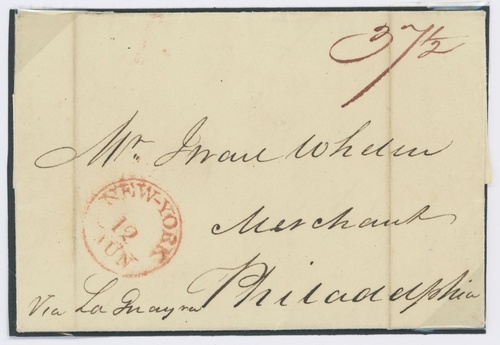 37½
Mr. Israel Whelen
NEW-YORK
12
JUN
Merchant
Philadelphia
Via La Guayra